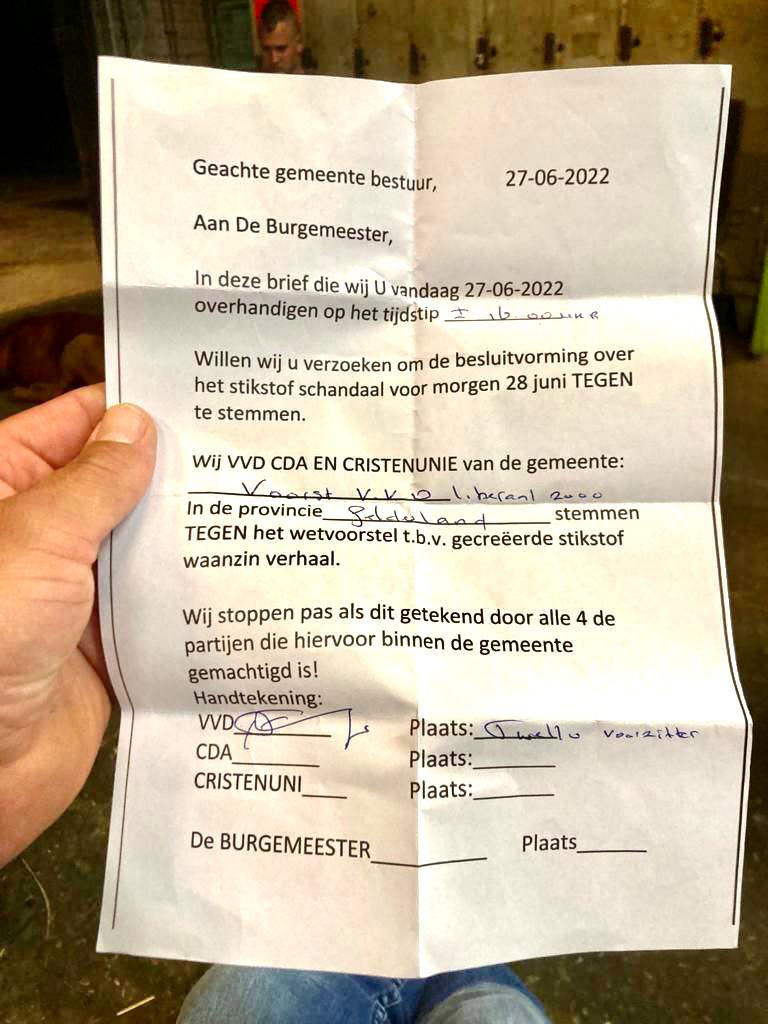 Geachte gemeente bestuur, 27-06-2022
Aan De Burgemeester,
In deze brief die wij U vandaag 27-06-2022
overhandigen op het tijdstip ± 16 00 uur
Willen wij u verzoeken om de besluitvorming over
het stikstof schandaal voor morgen 28 juni TEGEN
te stemmen.
Wij VVD CDA EN CRISTENUNIE van de gemeente:
Voorst V.V.D liberaal 2000
In de provincie Gelderland stemmen
TEGEN het wetvoorstel t.b.v. gecreëerde stikstof
waanzin verhaal.
Wij stoppen pas als dit getekend door alle 4 de
partijen die hiervoor binnen de gemeente
gemachtigd is!
Handtekening:
VVD Plaats: Twello voorzitter
CDA Plaats:
CRISTENUNI Plaats:
De BURGEMEESTER Plaats